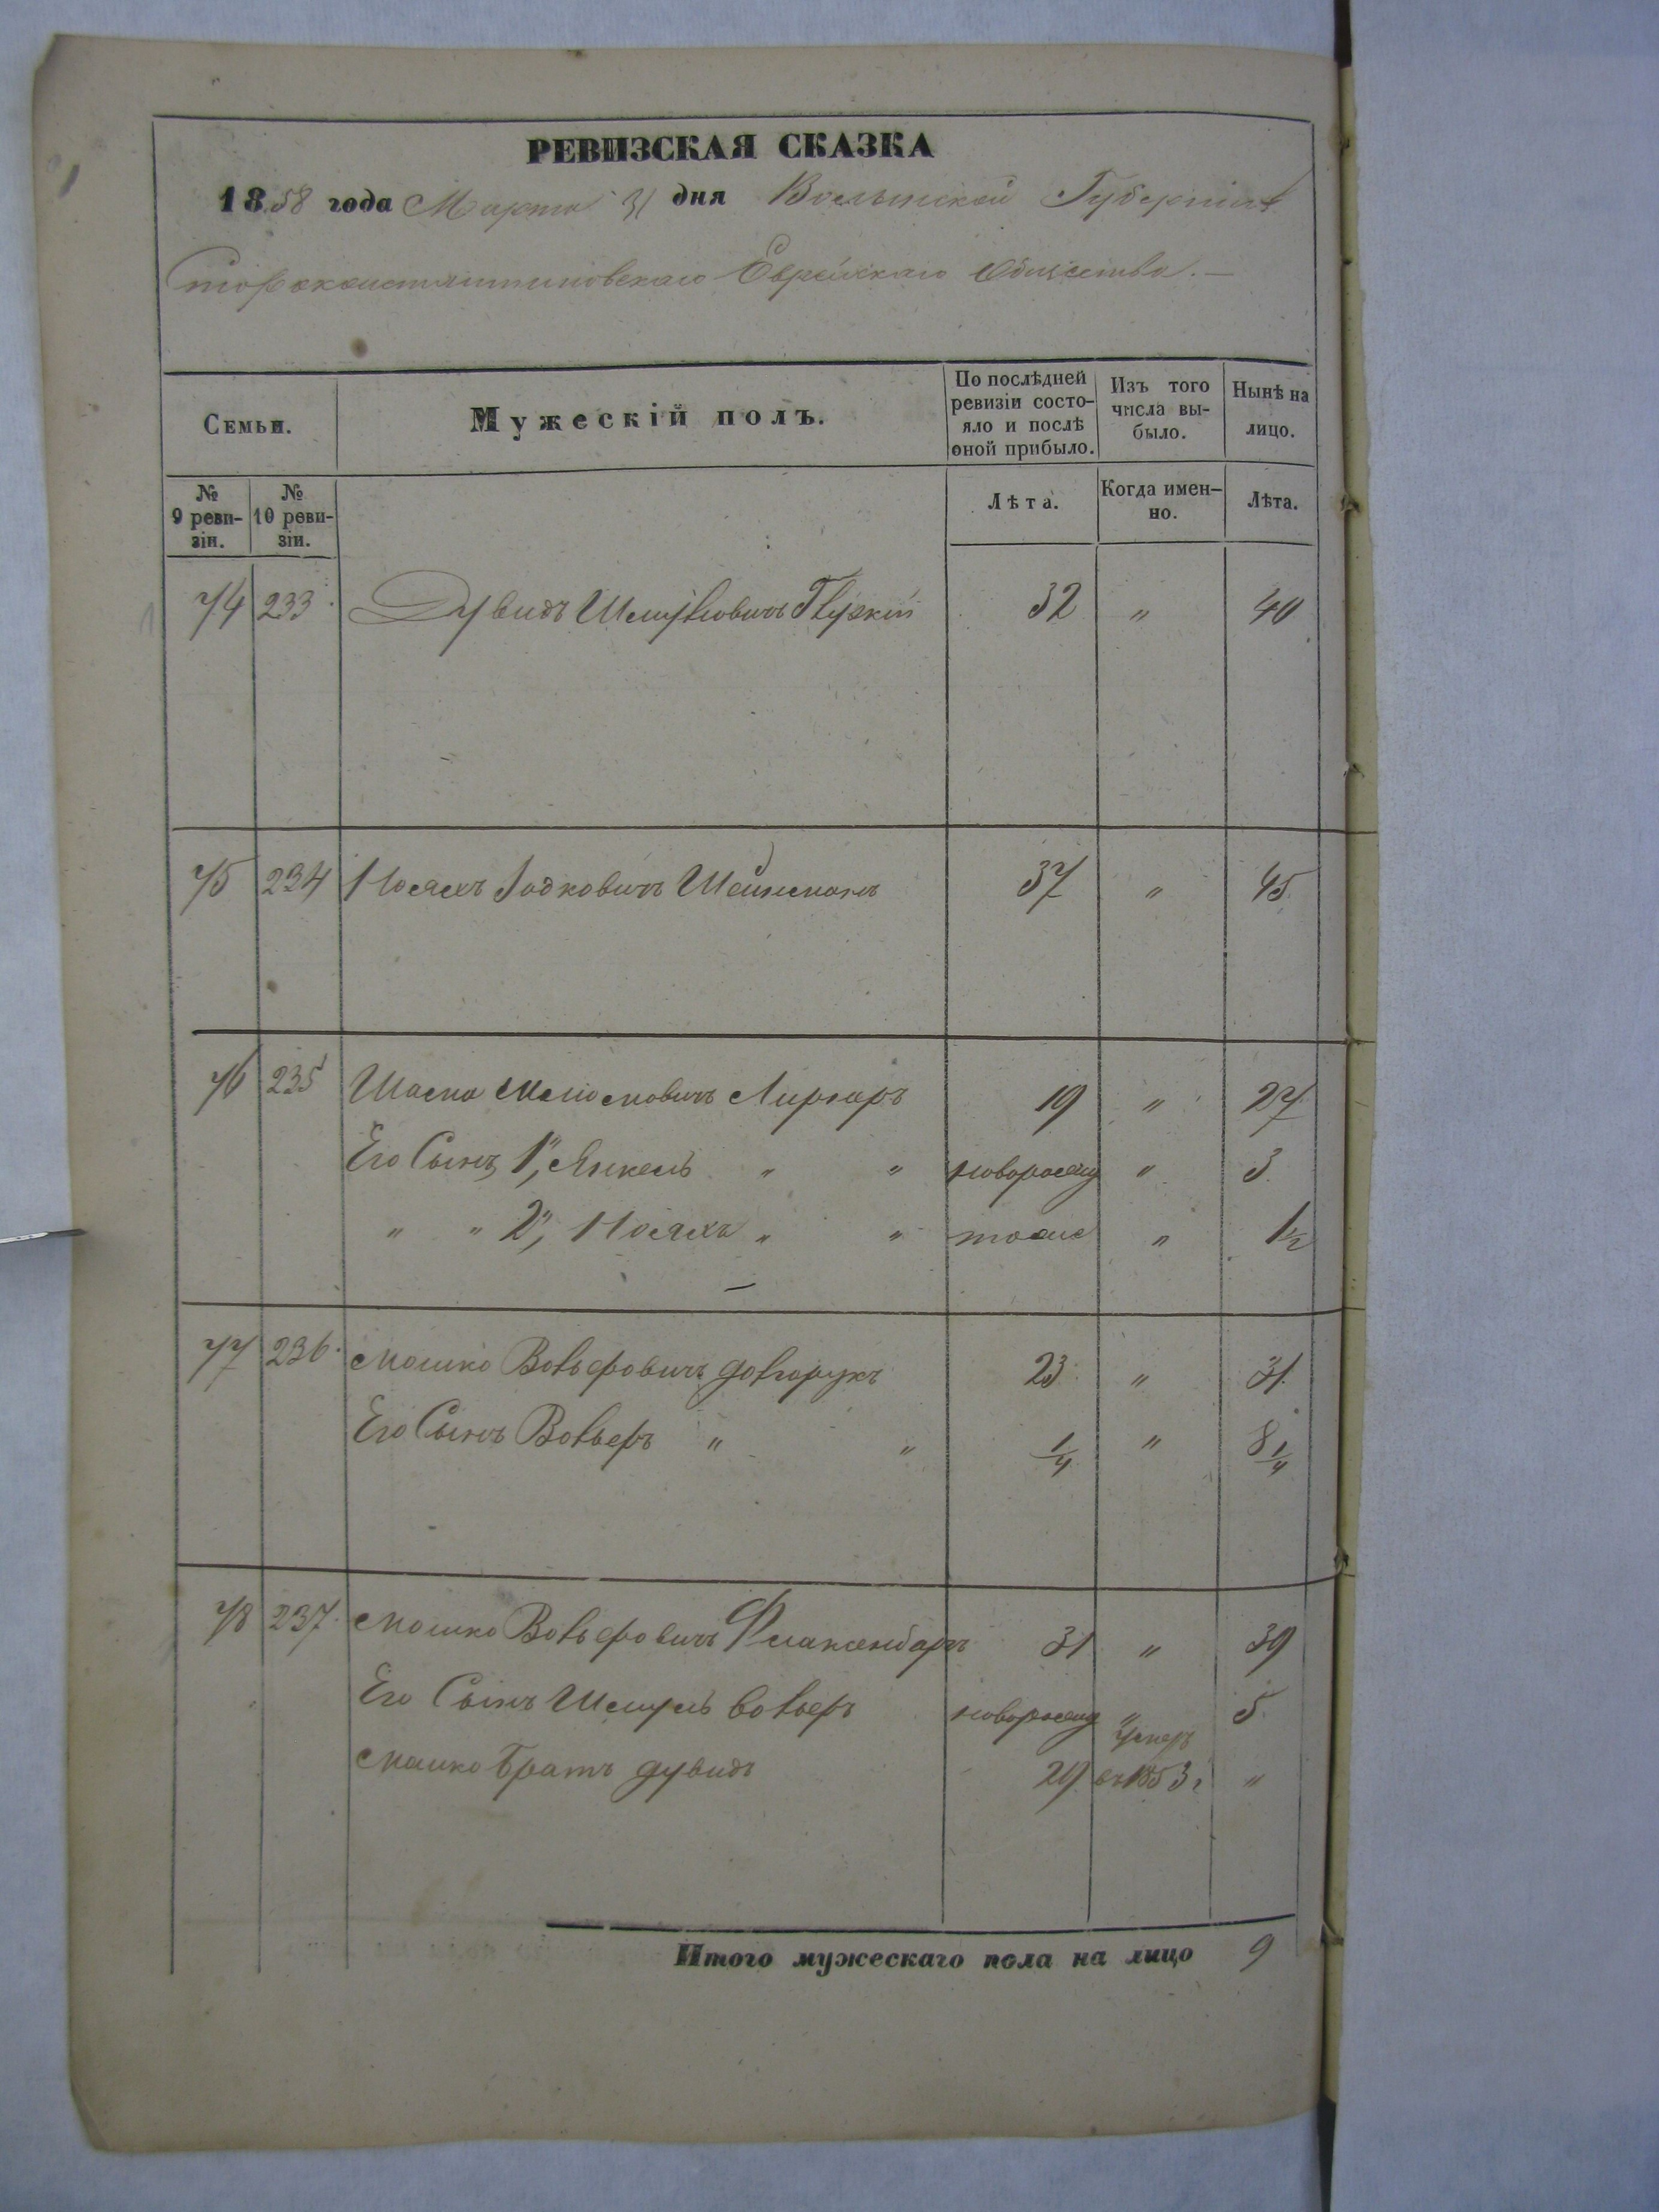 РЕВИЗСКАЯ СКАЗКА
1858 года Марта 31 дня Волынской Губерніи
Староконстантиновскаго Еврейскаго Общества.—
Семьи.
Мужескій полъ.
По послѣдней ревизіи состо-
яло и послѣ
оной прибыло.
Изъ того
числа вы-
было.
Нынѣ на
лицо.
№
9 реви-
зіи.
№
10 реви-
зіи.
Лѣта.
Когда имен-
но.
Лѣта.
74 233 Дувидъ Шмулёвичъ 32 " 40
75 234 Носяхъ Іозковичъ Шейнманъ 37 " 45
76 235 Шаема 19 " 27
Его Сынъ 1, Янкель " " новорожд " 3
" " 2, Носяхъ " " тоже " 1½
77 236 Мошко Вольфовичъ Долгорукъ 23 " 31
Его Сынъ Вольфъ " " ¼ " 8¼
78 237 Мошко Вольфовичъ Флаксенбаргъ 31 " 39
Его Сынъ Шмуль Вольфъ новорожд " 5
Мошко Братъ Дувидъ 29 умеръ въ 1853 г "
Итого мужескаго пола на лицо 9